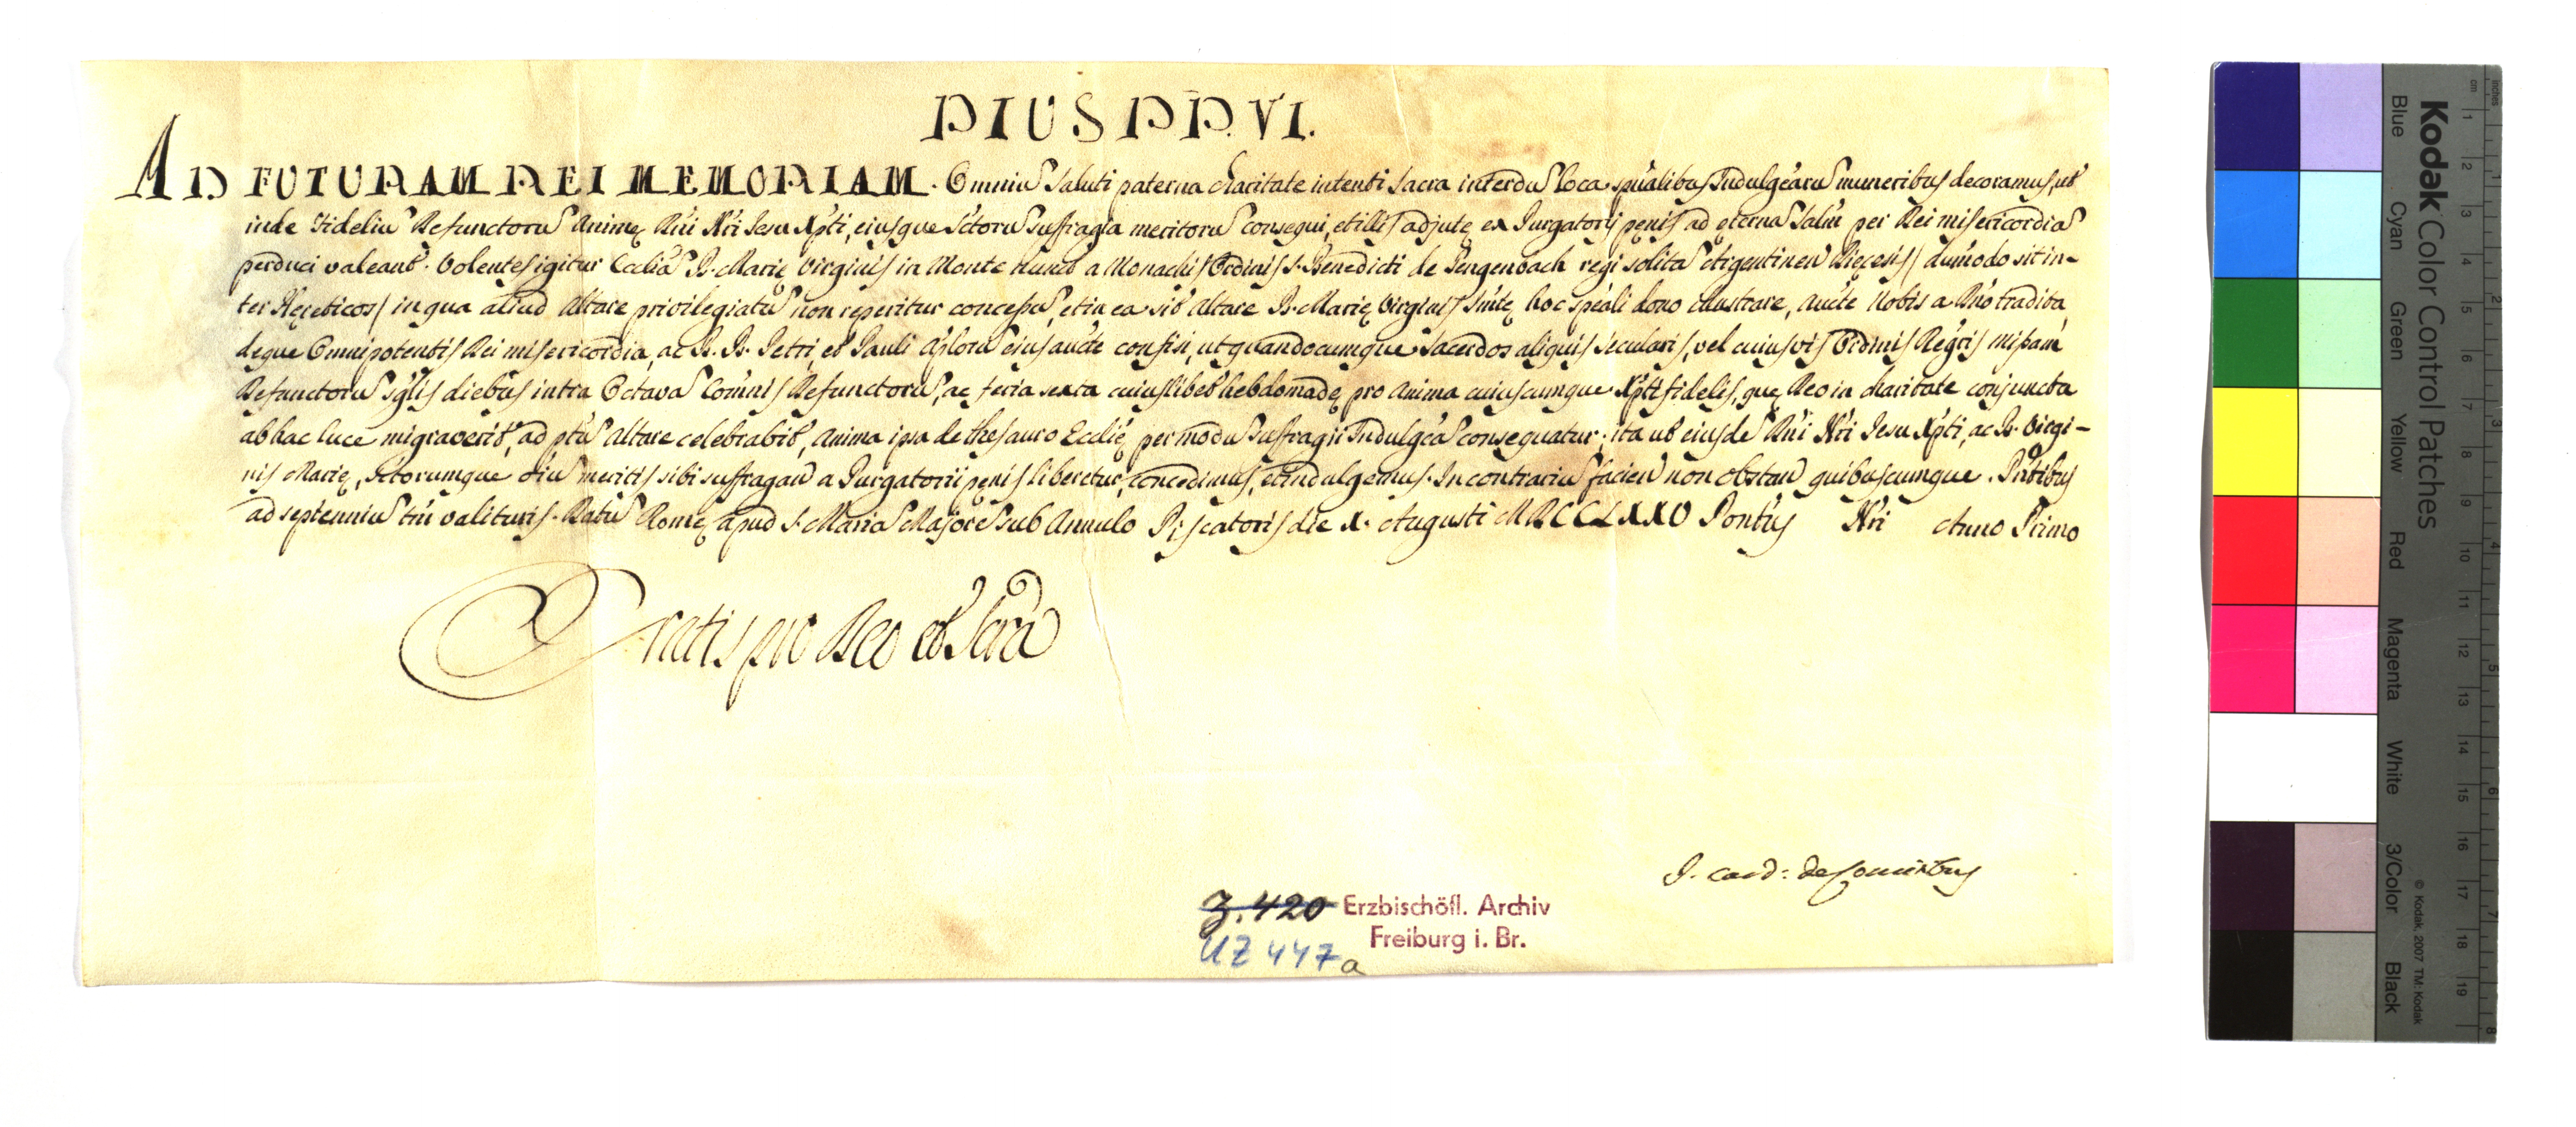 PIUS PP. VI.
AD FUTURAM REI MEMORIAM. Omniu Saluti paterna charitate intenti Sacra interdu Loca spualibus Indulgearu muneribus decoramus, ut
inde Fideliu Defunctoru Animę Dni Nri Jesu Xpti, eiusque Sctoru suffragia meritoru consequi, et illis adjutę ex Purgatorij pęnis ad ęterna Salm per Dei misericordia
perduci valeant. Volentes igitur Eccliâ B. Marię Virginis in Monte nuncup a Monachis Ordinis S. Benedicti de Gengenbach regi solita Argentinen Dięcesis / dumodo sit in-
ter Hęreticos / in qua aliud Altare privilegiatu non reperitur concessu, et in ea sit Altare B. Marię Virginis Smłę hoc speâli dono illustrare, aucte Nobis a Dno tradita
deque Omnipotentis Dei misericordia, ac B. B. Petri, et Pauli Aploru eius aucte confisi, ut quandocumque Sacerdos aliquis sęcularis, vel cuiusvis Ordinis Regris missam
Defunctoru sglis diebus intra Octava Comnis Defunctoru, ac feria sexta cuiuslibet hebdomadę pro Anima cuiuscumque Xpti fidelis, quę Deo in charitate conjuncta
ab hac luce migraverit, ad ptu Altare celebrabit, Anima ipsa de thesauro Ecclię per modu suffragii Indulgea consequatur; ita ut eiusde Dni Nri Jesu Xpti, ac B. Virgi-
nis Marię, Sctorumque oiu meritis sibi suffragan a Purgatorii pęnis liberetur, concedimus, et indulgemus. In contrariu facien non obstan quibuscumque. Pntibus
ad septenniu tm valituris. Datu Romę apud S. Maria Majore sub Annulo Piscatoris die X. Augusti MDCCLXXV Pontus Nri Anno Primo
Gratis pro Deo et Scra
J. Card: de Comitibus
Z. 420 Erzbischöfl. Archiv
UZ 447a Freiburg i. Br.
Kodak Color Control Patches
Blue Cyan Green Yellow Red Magenta White 3/Color Black
© Kodak, 2007 TM: Kodak
cm 1 2 3 4 5 6 7 8 9 10 11 12 13 14 15 16 17 18 19
inches 1 2 3 4 5 6 7 8